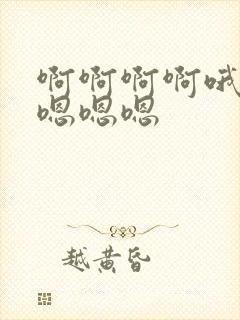 啊啊啊啊哦
嗯嗯嗯
越黄昏